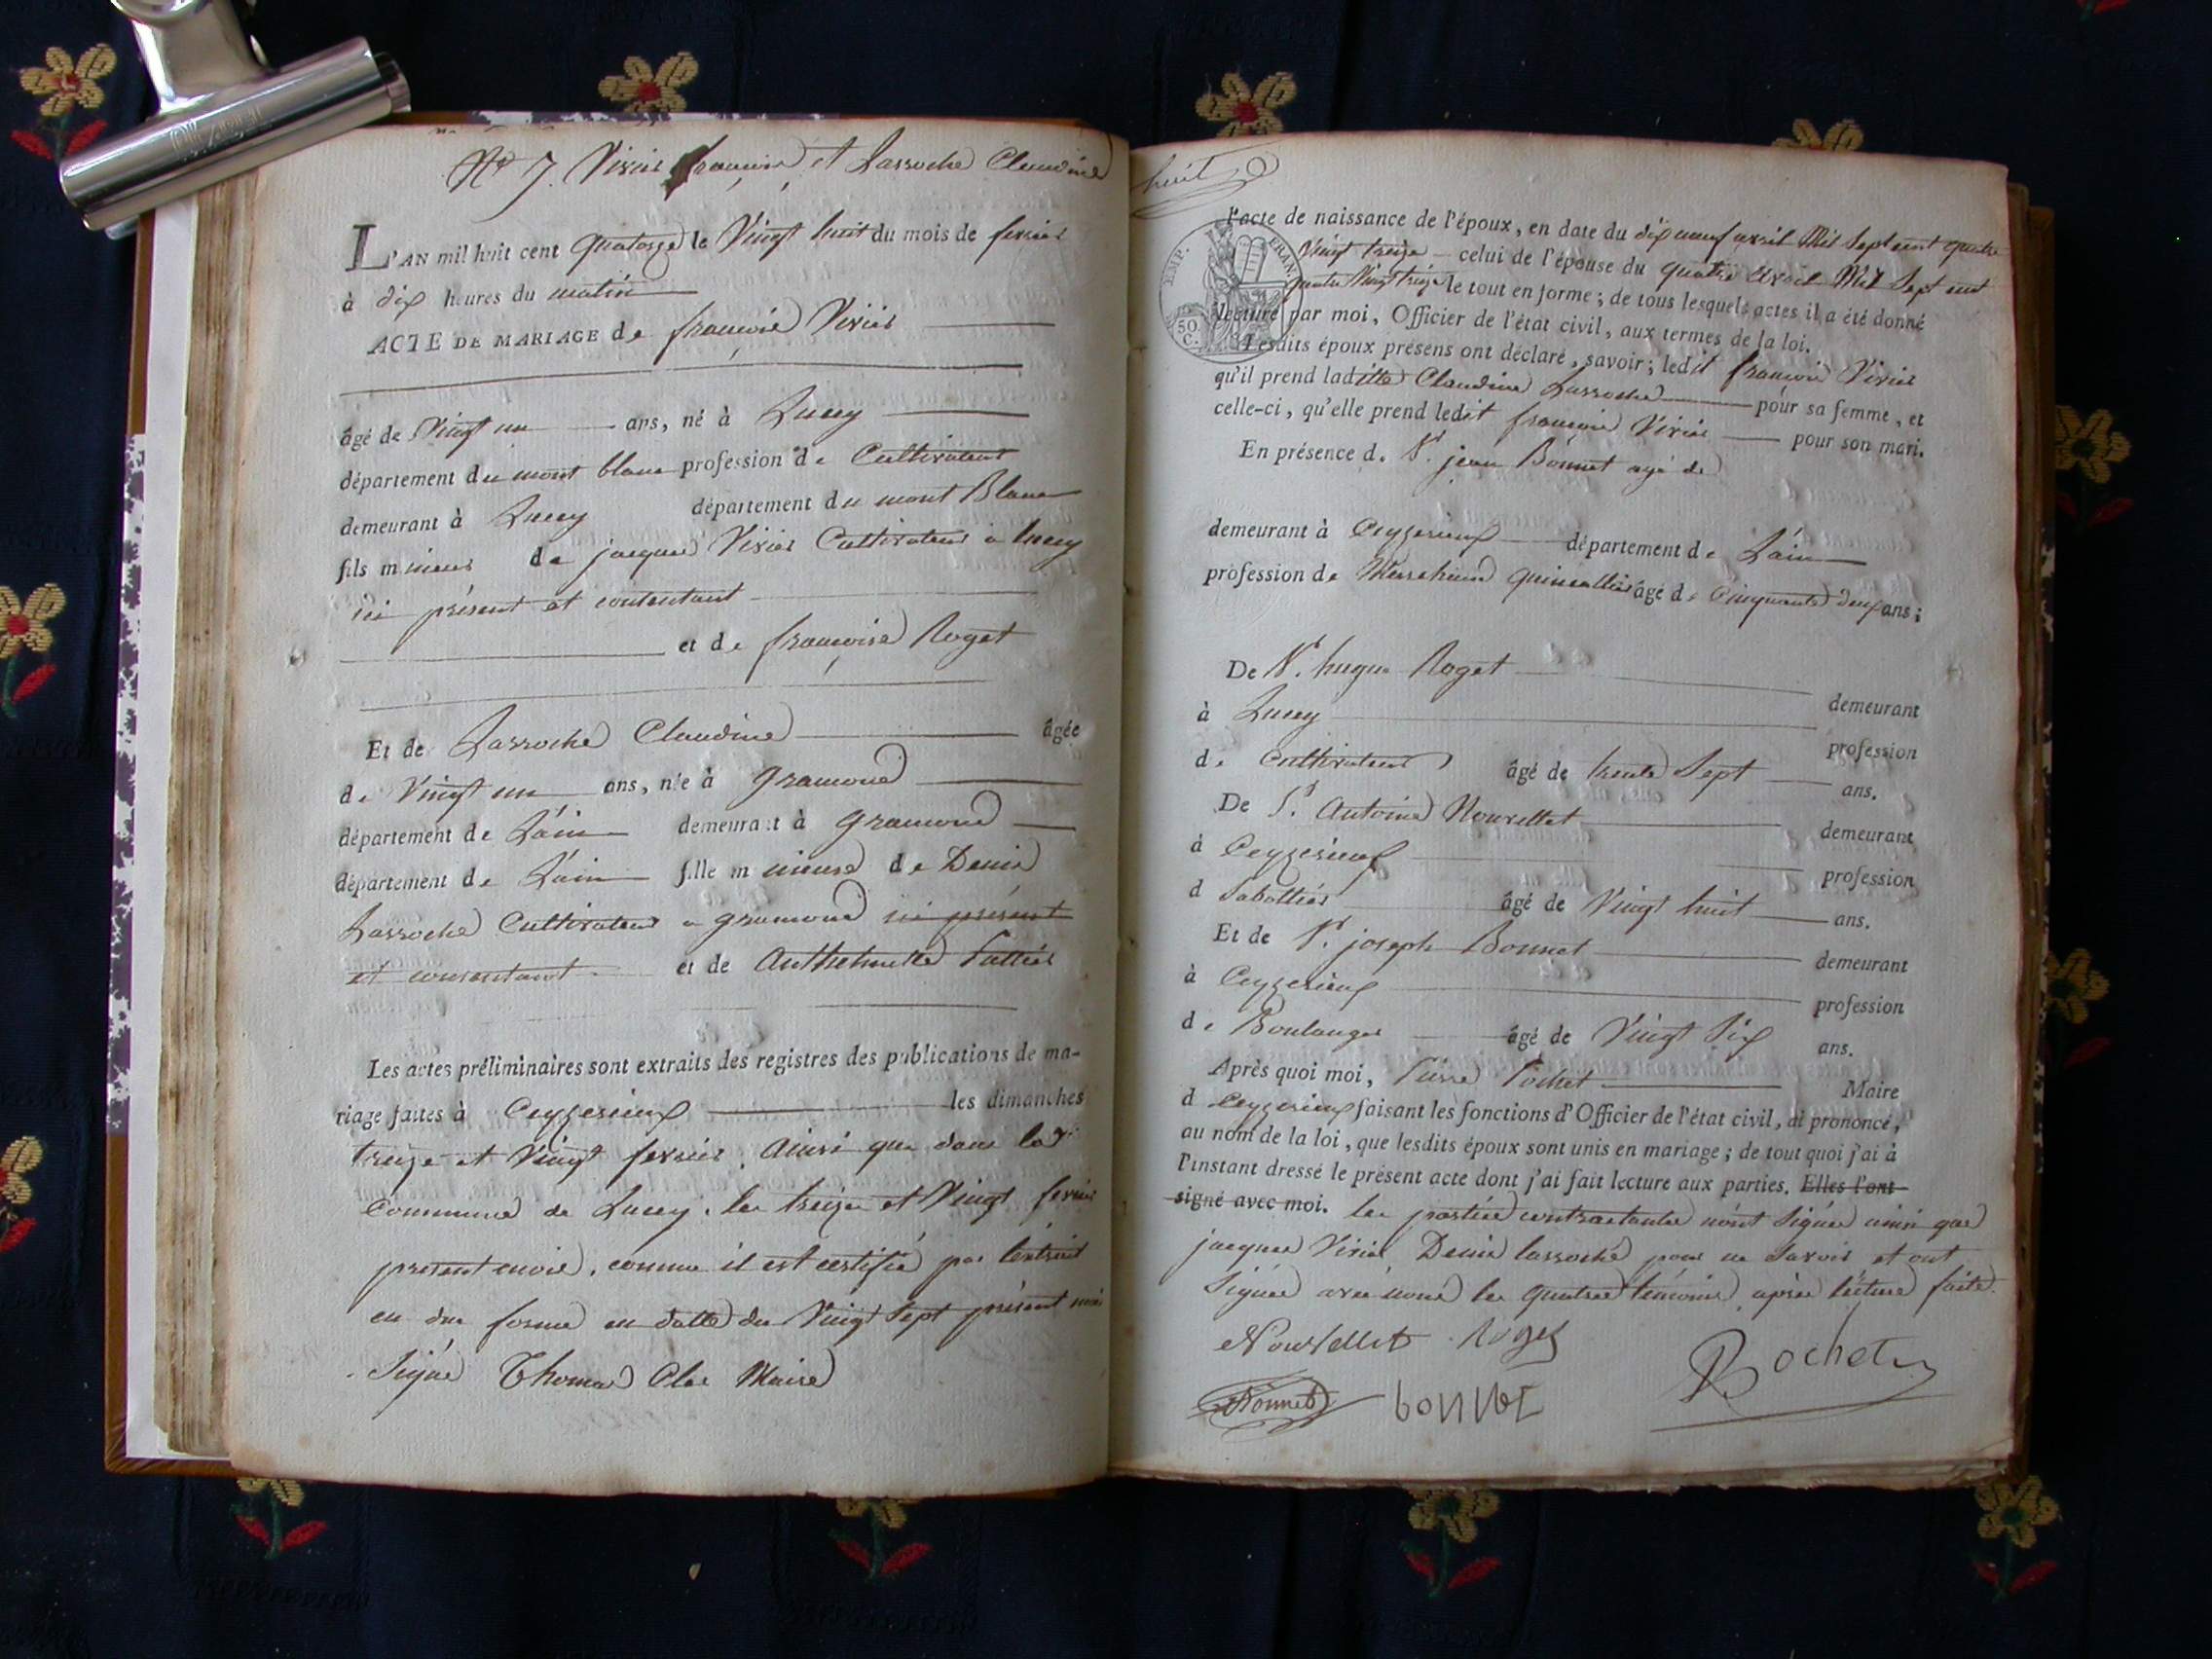 No 7. Vivier françois et Lassoche Claudine
L'AN mil huit cent quatorze le Vingt huit du mois de fevrier
à dix heures du matin
ACTE DE MARIAGE de françois Vivier
âgé de Vingt un ans, né à Lucey
département du mont blanc profession de Cultivateur
demeurant à Lucey département du mont Blanc
fils mineur de jacques Vivier Cultivateur a lucey
ici présent et contentant
et de françoise Roget
Et de Lassoche Claudine âgée
de Vingt un ans, née à gramond
département de L'ain demeurant à gramond
département de L'ain fille mineure de Denis
Lassoche Cultivateur a gramond ici présent
et consentant et de Anthelmette
Les actes préliminaires sont extraits des registres des publications de ma-
riage faites à Ceyzerieux les dimanches
treize et Vingt fevrier. Ainsi que dans la
Commune de Lucey. les treize et Vingt fevrier
present mois, comme il est certifié par lextrait
en due forme en datte du Vingt Sept présent mois
Signé Thomas Cler Maire
huit
EMP. FRAN.
50 C.
l'acte de naissance de l'époux, en date du dix neuf avril Mil Sept cent quatre
Vingt treize celui de l'épouse du quatre avril Mil Sept cent
quatre Vingt treize le tout en forme ; de tous lesquels actes il a été donné
lecture par moi, Officier de l'état civil, aux termes de la loi.
Lesdits époux présens ont déclaré, savoir ; ledit françois Vivier
qu'il prend laditte Claudine Lassoche pour sa femme, et
celle-ci, qu'elle prend ledit françois Vivier pour son mari.
En présence de Sr. jean Bonnet agé de
demeurant à Ceyzerieux département de L'ain
profession de Marchand quincallier âgé de Cinquante deux ans ;
De Sr. hugue Roget demeurant
à Lucey profession
de Cultivateur âgé de trente Sept ans.
De Sr. Antoine Nourellet demeurant
à Ceyzerieux profession
d Sabottier âgé de Vingt huit ans.
Et de Sr. joseph Bonnet demeurant
à Ceyzerieux profession
de Boulanger âgé de Vingt Six ans.
Après quoi moi, Pierre Pochet Maire
d Ceyzerieux faisant les fonctions d'Officier de l'état civil, ai prononcé,
au nom de la loi, que lesdits époux sont unis en mariage ; de tout quoi j'ai à
l'instant dressé le présent acte dont j'ai fait lecture aux parties. Elles l'ont
signé avec moi. les parties contractantes n'ont Signées ainsi que
jacques Vivier Denis lassoche pour ne Savoir et ont
Signées avec nous les quatres témoins, après lecture faite.
Nourellet Roget
Bonnet bonnet Pochet